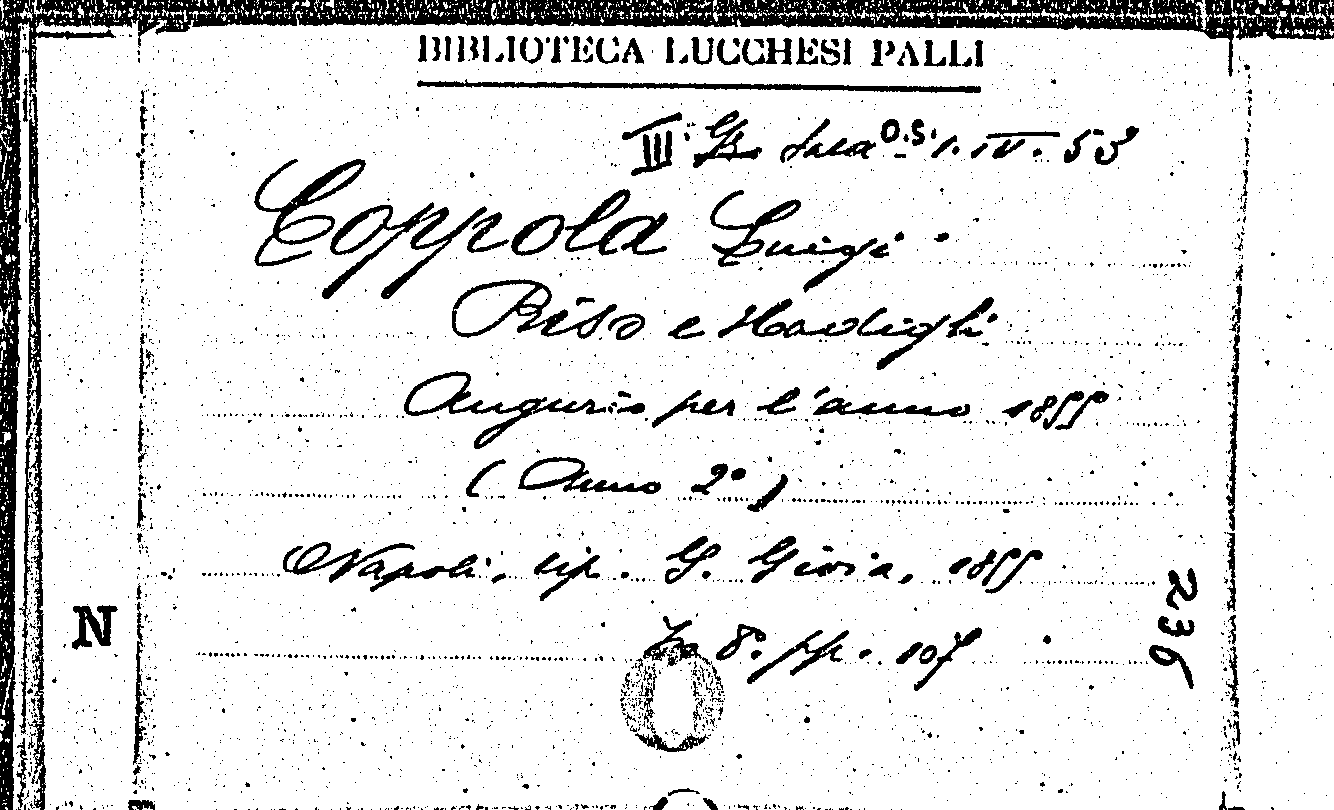 BIBLIOTECA LUCCHESI PALLI
III. Sala O.S. 1. IV. 53
Coppola Luigi
Riso e
Augurio per l'anno 1855
(Anno 2°)
Napoli, tip. G. Gioia, 1855
In 8° pp. 107
N
236